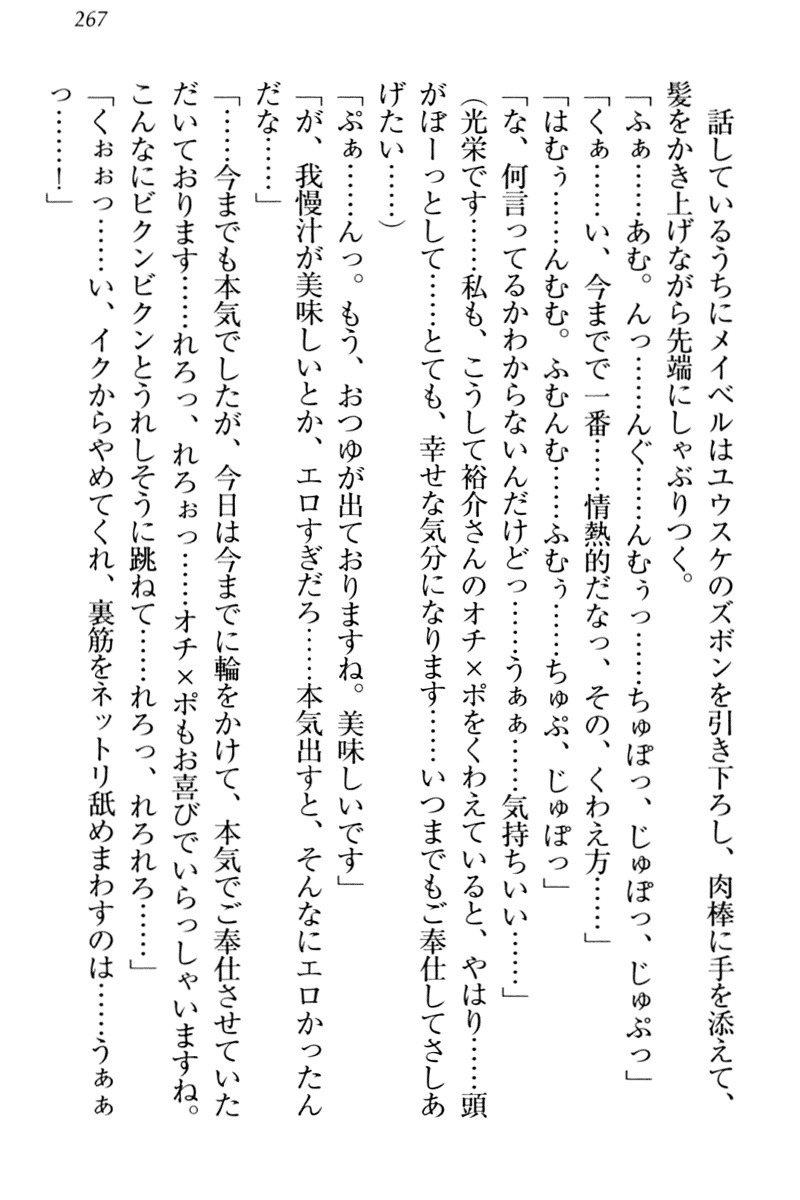 267
　話しているうちにメイベルはユウスケのズボンを引き下ろし、肉棒に手を添えて、
髪をかき上げながら先端にしゃぶりつく。
「ふぁ……あむ。んっ……んぐ……んむぅっ……ちゅぽっ、じゅぽっ、じゅぷっ」
「くぁ……い、今までで一番……情熱的だなっ、その、くわえ方……」
「はむぅ……んむむ。ふむんむ……ふむぅ……ちゅぷ、じゅぽっ」
「な、何言ってるかわからないんだけどっ……うぁぁ……気持ちいい……」
（光栄です……私も、こうして裕介さんのオチ×ポをくわえていると、やはり……頭
がぼーっとして……とても、幸せな気分になります……いつまでもご奉仕してさしあ
げたい……）
「ぷぁ……んっ。もう、おつゆが出ておりますね。美味しいです」
「が、我慢汁が美味しいとか、エロすぎだろ……本気出すと、そんなにエロかったん
だな……」
「……今までも本気でしたが、今日は今までに輪をかけて、本気でご奉仕させていた
だいております……れろっ、れろぉっ……オチ×ポもお喜びでいらっしゃいますね。
こんなにビクンビクンとうれしそうに跳ねて……れろっ、れろれろ……」
「くぉぉっ……い、イクからやめてくれ、裏筋をネットリ舐めまわすのは……うぁぁ
っ……！」